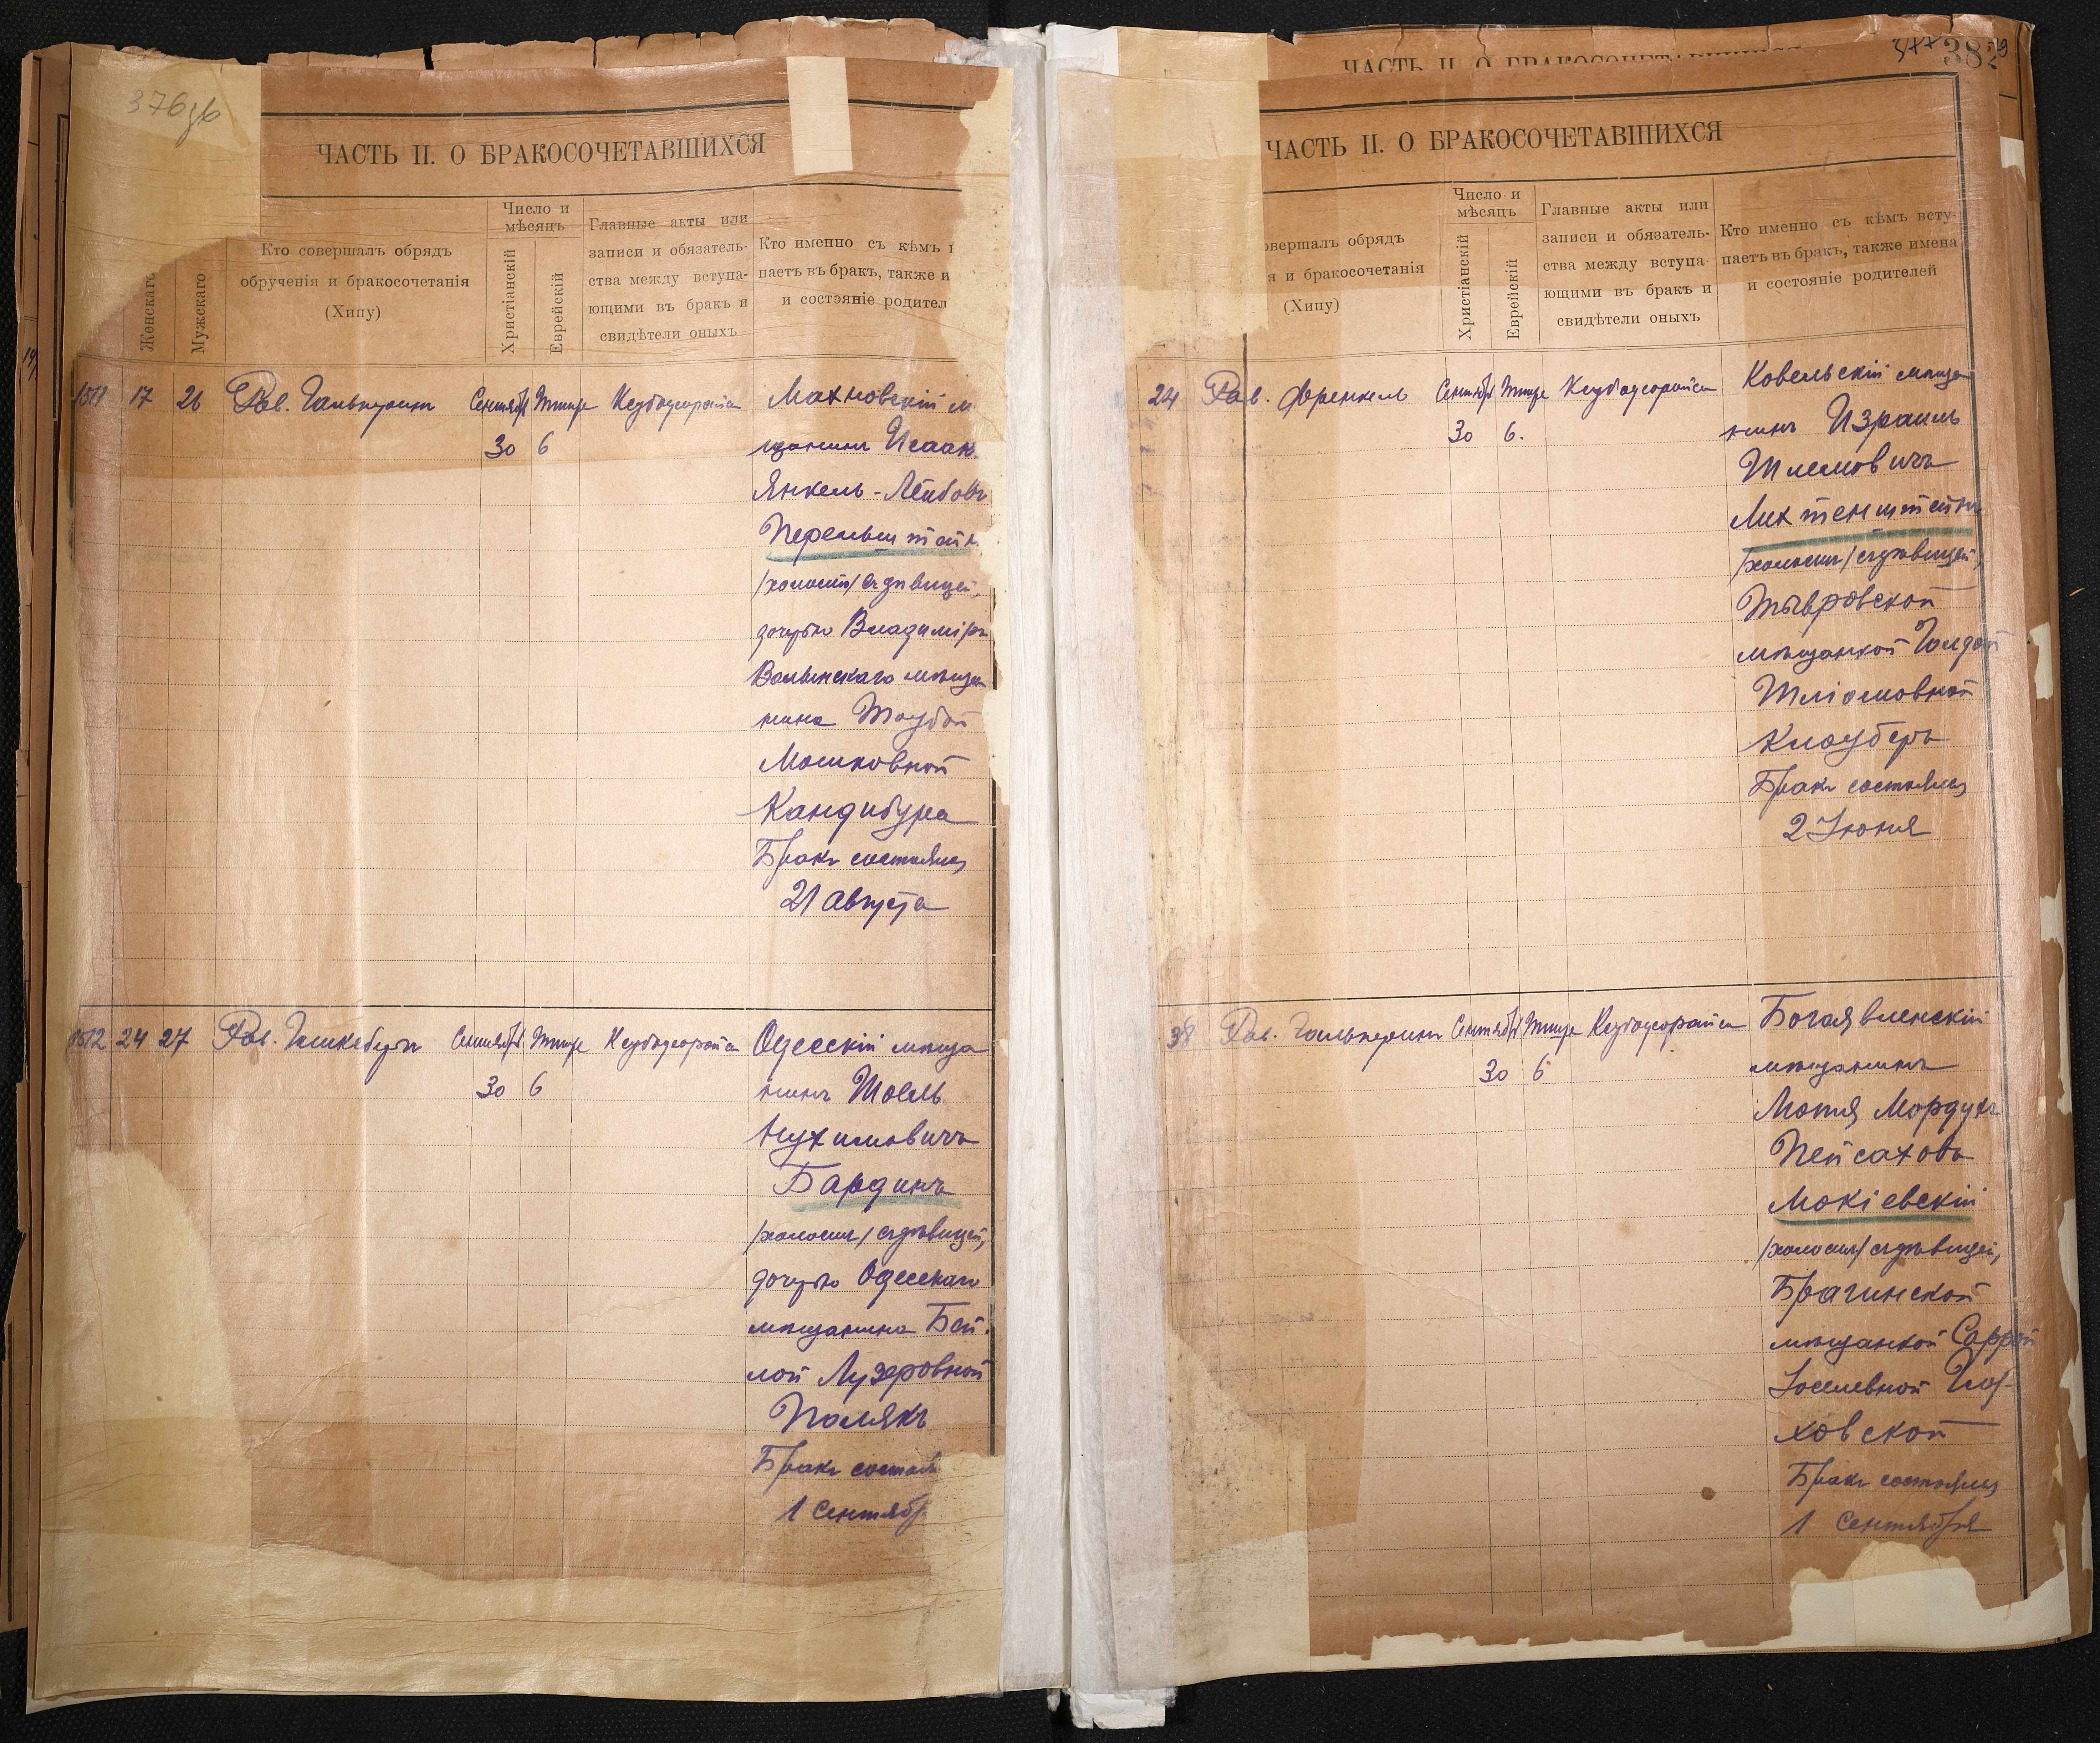 376об
ЧАСТЬ II. О БРАКОСОЧЕТАВШИХСЯ
Женскаго
Мужскаго
Кто совершалъ обрядъ
обрученія и бракосочетанія
(Хипу)
Число и
мѣсяцъ
Христіанскій
Еврейскій
Главные акты или
записи и обязатель-
ства между вступа-
ющими въ бракъ и
свидѣтели оныхъ
Кто именно съ кѣмъ
паетъ въ бракъ, также и
и состояніе родител
1511 17 26 Рав. Гальперинъ Сентябр Тишре Кезбодеорайса
30 6
Махновскій м
щанинъ Исаак
Янкель-Лейбовъ
Перельштейн
/холостъ/ съ дѣвицей,
дочерью Владиміръ
Волынскаго мѣща
нина Таубой
Мошковной
Кандибура
Бракъ состоялся
21 Августа
1512 24 27 Рав. Сентябр Тишре Кезбодеорайса
30 6
Одесскій мѣща
нинъ Шоель
Нухимовичъ
Бардинъ
/холостъ/ съ дѣвицей,
дочерью Одесскаго
мѣщанина Бей
лой Лузеровной
Полякъ
Бракъ состоял
1 Сентябр
382
ЧАСТЬ II. О БРАКОСОЧЕТАВШИХСЯ
ЧАСТЬ II. О БРАКОСОЧЕТАВШИХСЯ
овершалъ обрядъ
я и бракосочетанія
(Хипу)
Число и
мѣсяцъ
Христіанскій
Еврейскій
Главные акты или
записи и обязатель-
ства между вступа-
ющими въ бракъ и
свидѣтели оныхъ
Кто именно съ кѣмъ всту-
паетъ въ бракъ, также имена
и состояніе родителей
24 Рав. Френкель Сентябр Тишре Кезбодеорайса
30 6.
Ковельскій мѣща
нинъ Израиль
Шлемовичъ
Лихтенштейнъ
/холостъ/ съ дѣвицей,
Тывровской
мѣщанкой Голдой
Шліомовной
Клауберъ
Бракъ состоялся
2 Іюня
38 Рав. Гальперинъ Сентябр Тишре Кезбодеорайса
30 6
Богоявленскій
мѣщанинъ
Мотя Мордухъ
Пейсаховъ
Мокіевскій
/холостъ/ съ дѣвицей,
Брагинской
мѣщанкой Саррой
Іоселевной
ховской
Бракъ состоялся
1 Сентября